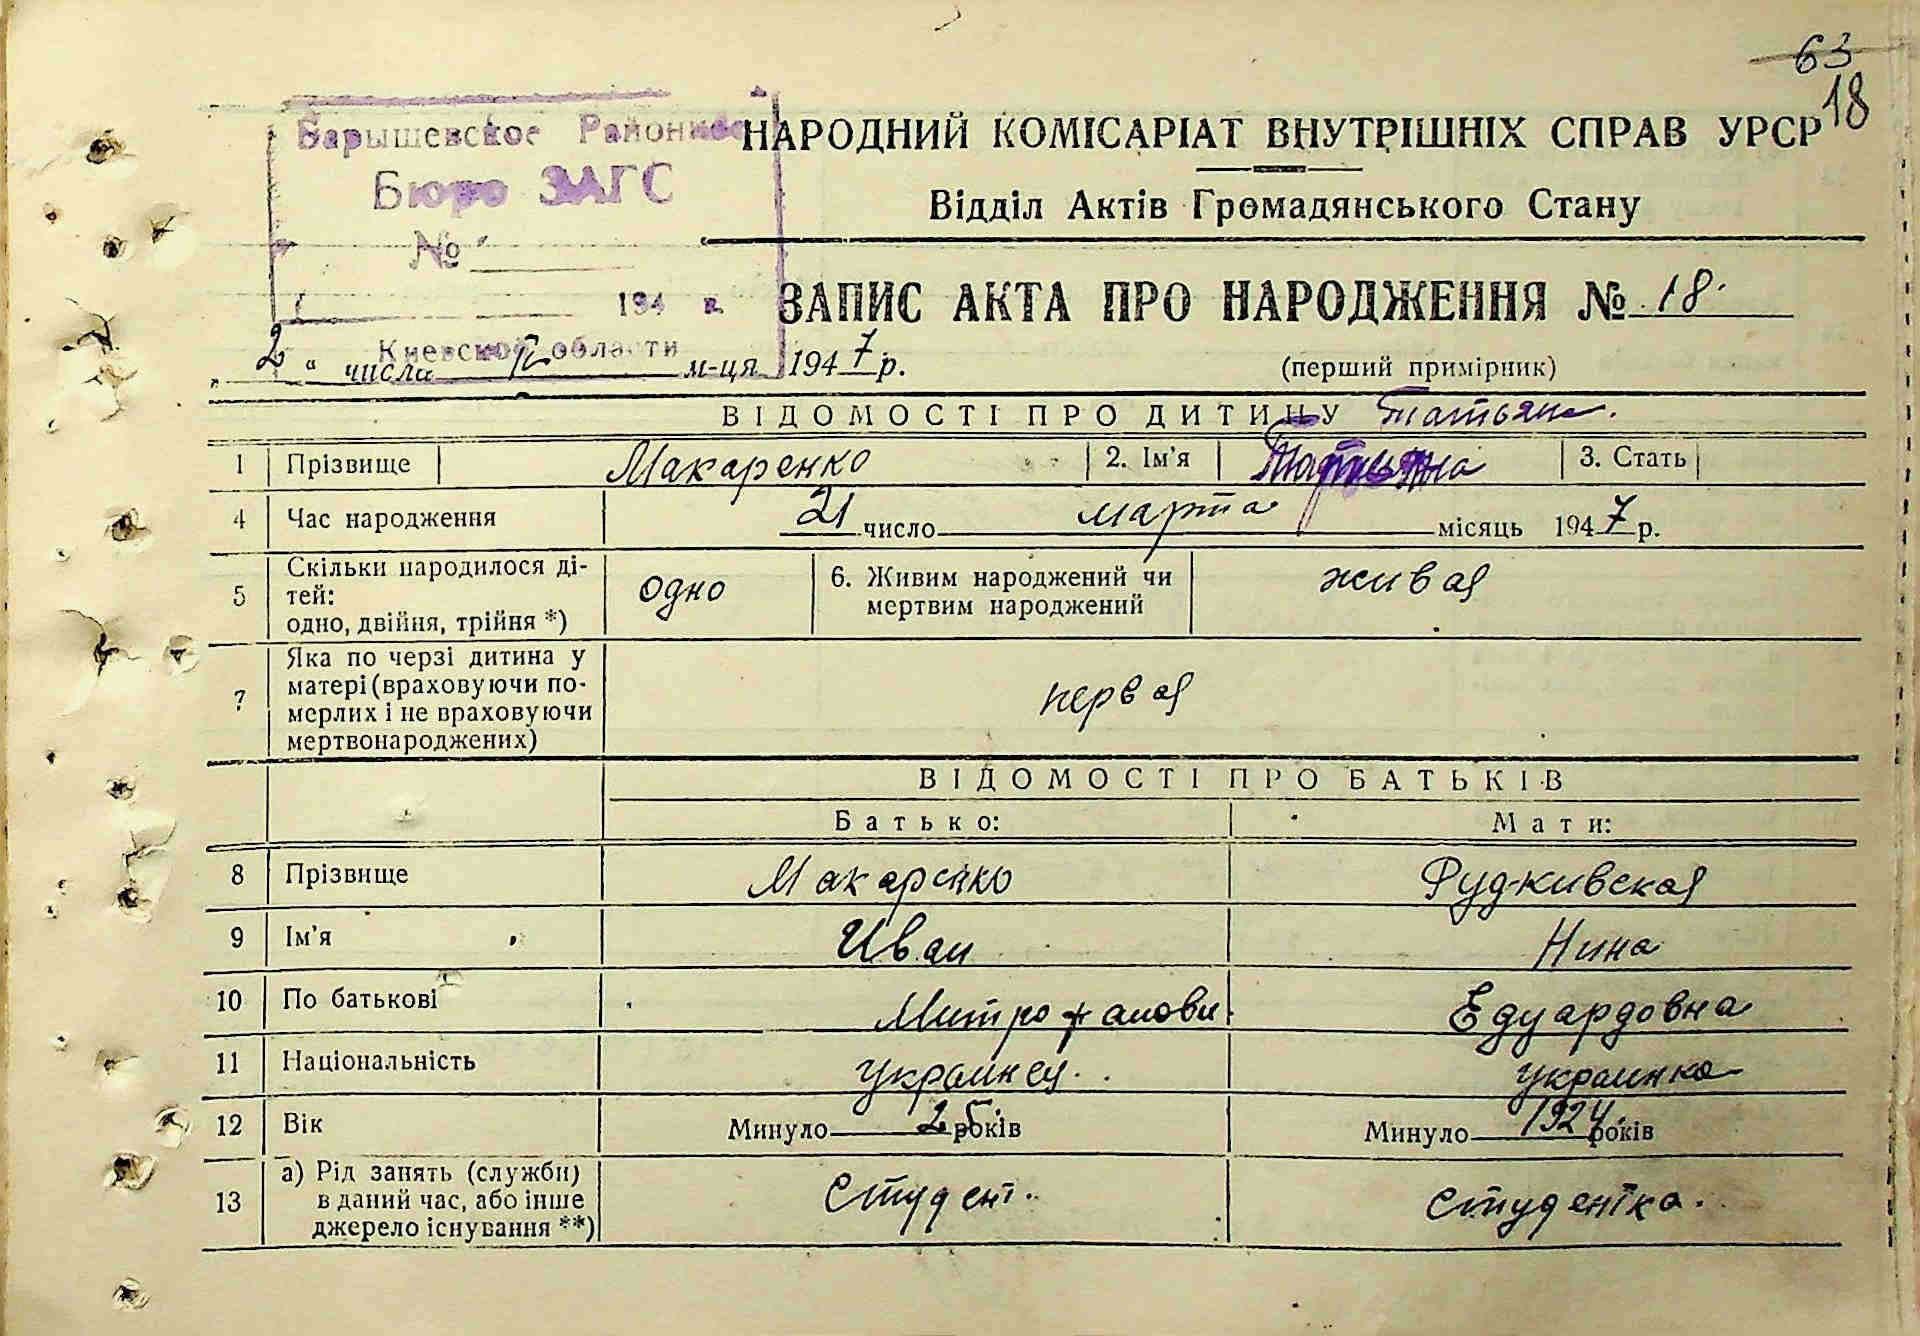 63
18
Барышевское Районное
Бюро ЗАГС
№
194 г.
Киевской области
НАРОДНИЙ КОМІСАРІАТ ВНУТРІШНІХ СПРАВ УРСР
Відділ Актів Громадянського Стану
ЗАПИС АКТА ПРО НАРОДЖЕННЯ № 18.
„ 2 “ числа IV м-ця 1947 р.
(перший примірник)
ВІДОМОСТІ ПРО ДИТИНУ Татьяна.
1 Прізвище Макаренко 2. Ім'я Татьяна 3. Стать
4 Час народження 21 число марта місяць 1947 р.
5 Скільки народилося ді-
тей:
одно, двійня, трійня *) одно 6. Живим народжений чи
мертвим народжений живая
7 Яка по черзі дитина у
матері (враховуючи по-
мерлих і не враховуючи
мертвонароджених) первая
ВІДОМОСТІ ПРО БАТЬКІВ
Батько: Мати:
8 Прізвище Макаренко Рудкивская
9 Ім'я Иван Нина
10 По батькові Митрофанови Едуардовна
11 Національність украинец. украинка
12 Вік Минуло 25 років Минуло 1924. років
13 а) Рід занять (служби)
в даний час, або інше
джерело існування **) студент. студентка.